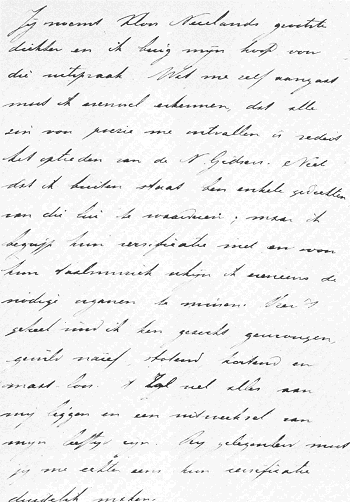 Jij noemt Kloos Neerlands grootste
dichter en ik buig mijn hoofd voor
die uitspraak. Wat me zelf aangaat
moet ik evenwel erkennen, dat alle
zin voor poezie me ontvallen is sedert
het optreden van de N. Gidsers. Niet
dat ik buiten staat ben enkele gedachten
van die lui te waardeeren; maar ik
begrijp hun versificatie niet en voor
hun taalmuziek schijn ik eveneens de
noodige organen te missen. Voor 't
geheel vind ik hen gezocht gewrongen,
naief, stotend hortend en
maat-loos. 't Zal wel alles aan
mij liggen en een uitwerksel van
mijn leeftijd zijn. Bij gelegenheid moet
jij me echter eens hun versificatie
duidelijk maken.